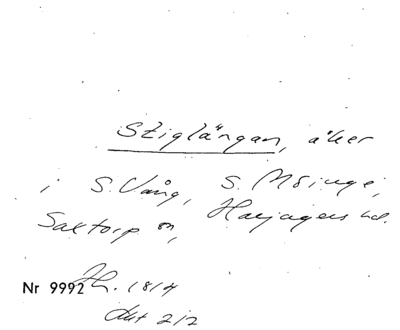 Stiglängan, åker
i S. Vång, S. Möinge,
Saxtorp sn, Harjagers hd.
Nr 9992 Jh. 1814
Akt 212